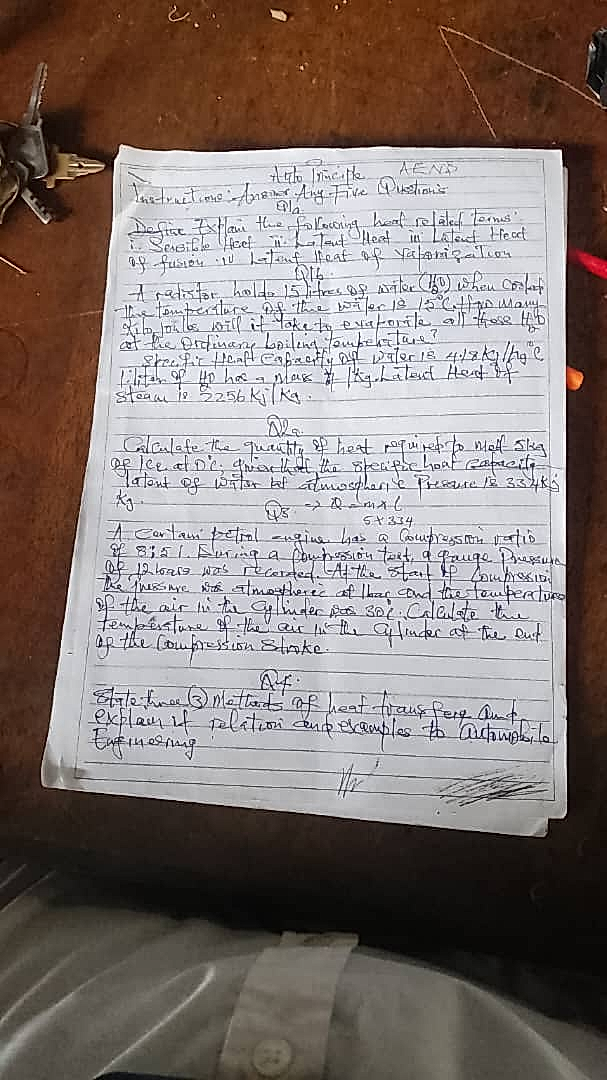 Auto Principle AEND
Instructions: Answer Any Five Questions
Q1a
Define Explain the following heat related terms:
i. Sensible Heat ii. Latent Heat iii Latent Heat
of fusion iv Latent Heat of Vaporization
Q1b
A radiator holds 15 litres of water (H2O) when cooled
the temperature of the water is 15°C. How many
Kilo joules will it take to evaporate all these H2O
at the Ordinary boiling temperature?
Specific Heat Capacity of water is 4.18Kj/kg°C
1 liter of H2O has a mass of 1Kg. Latent Heat of
Steam is 2256 Kj/Kg.
Q2a
Calculate the quantity of heat required to melt 5kg
of Ice at 0°C, given that the specific heat capacity
latent of water at atmospheric Pressure is 334Kj
Kg. → Q = m x L
5 x 334
Q3
A certain petrol engine has a Compression ratio
of 8:5:1. During a Compression test, a gauge Pressure
of 12 bars was recorded. At the start of Compression
the pressure was atmospheric at 1bar and the temperature
of the air in the Cylinder was 30°C. Calculate the
temperature of the air in the Cylinder at the end
of the Compression Stroke.
Q4.
State three (3) Methods of heat transfer and
explain it relation and examples to automobile
Engineering